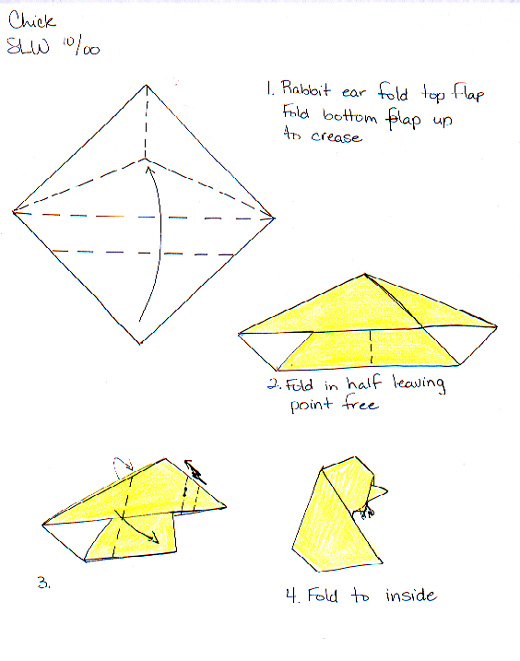 Chick
SLW 10/00
1. Rabbit ear fold top flap
Fold bottom flap up
to crease
2. Fold in half leaving
point free
3.
4. Fold to inside